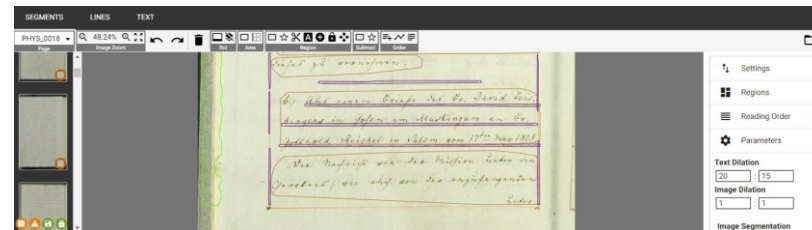 SEGMENTS LINES TEXT
PHYS_0018
Page
48.24%
Image Zoom
RoI
Area
Region
Subtract
Order
dieses zu vernehmen.
6.) Aus einem Briefe des Br. David Zeis-
bergers in Gosen am Muskingum an Br.
Gotthold Reichel in Salem vom 17ten May 1803.
Die Nachricht von der Mission unter den
Cherokees, wie auch von der
unter
Settings
Regions
Reading Order
Parameters
Text Dilation
20 : 15
Image Dilation
1 : 1
Image Segmentation